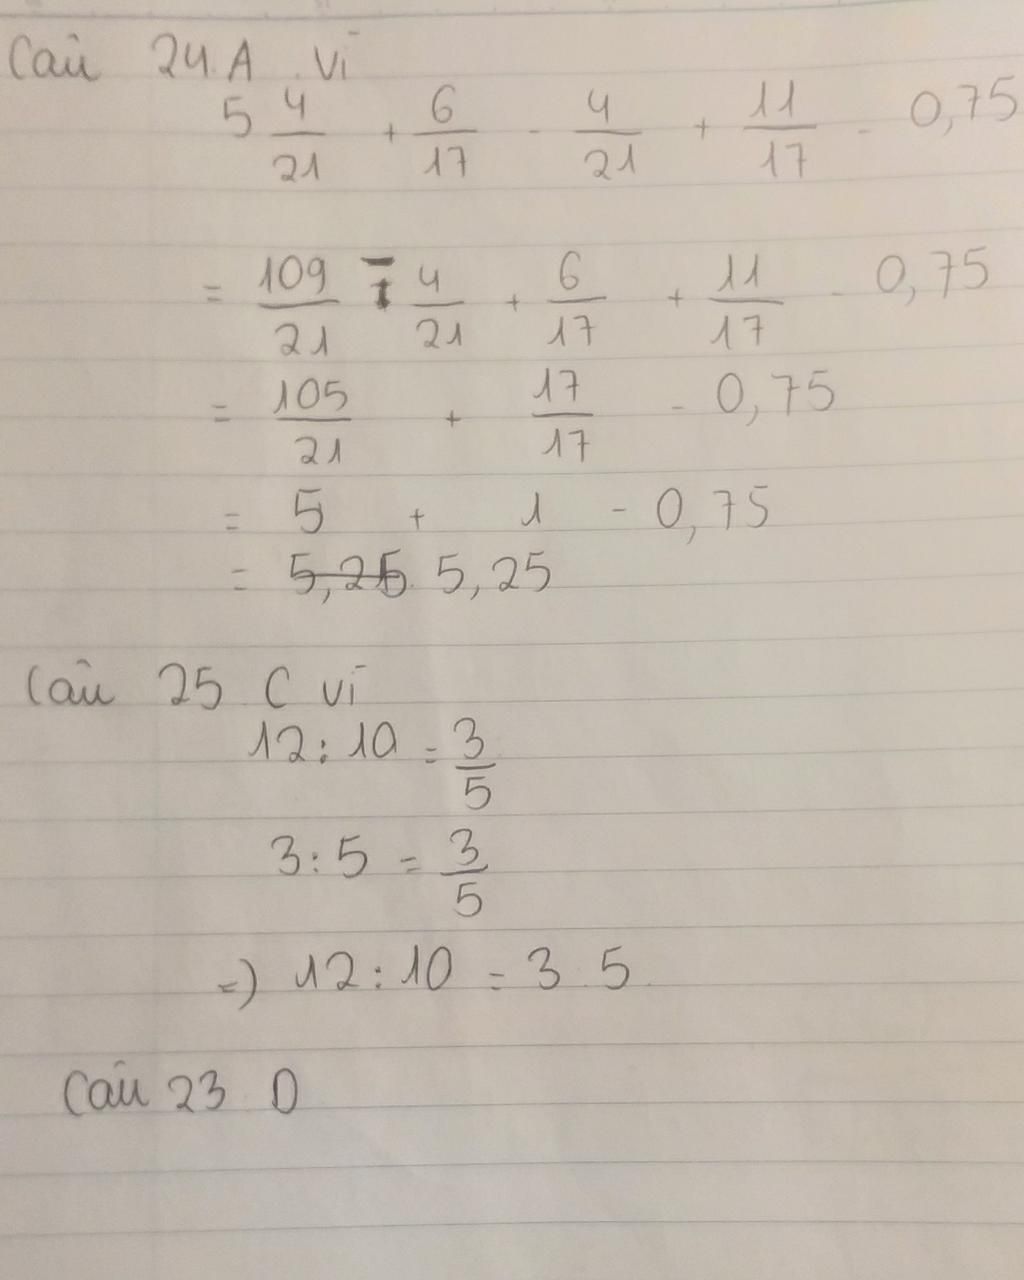 Câu 24.A. vì
5 4/21 + 6/17 - 4/21 + 11/17 - 0,75
= 109/21 - 4/21 + 6/17 + 11/17 - 0,75
= 105/21 + 17/17 - 0,75
= 5 + 1 - 0,75
= 5,25 5,25
Câu 25 C vì
12:10 = 3/5
3:5 = 3/5
=) 12:10 = 3 5
Câu 23 D